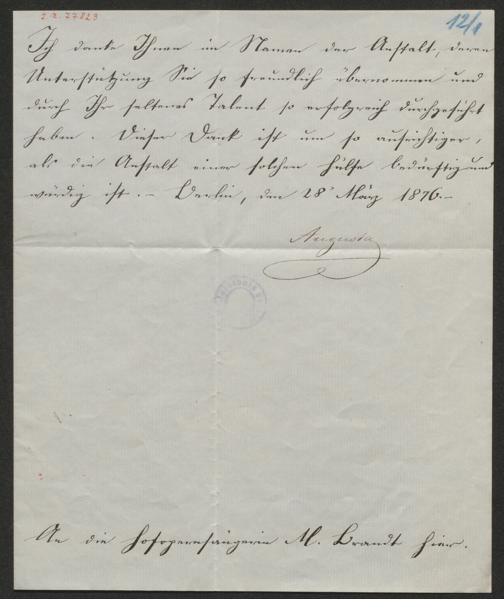 I. N. 27823
12/1
Ich danke Ihnen im Namen der Anstalt, deren
Unterstützung Sie so freundlich übernommen und
durch Ihr seltenes Talent so erfolgreich durchgeführt
haben. Dieser Dank ist um so aufrichtiger,
als die Anstalt einer solchen Hülfe bedürftig und
würdig ist. – Berlin, den 28' März 1876. –
Augusta
An die Hofopernsängerin M. Brandt hier.